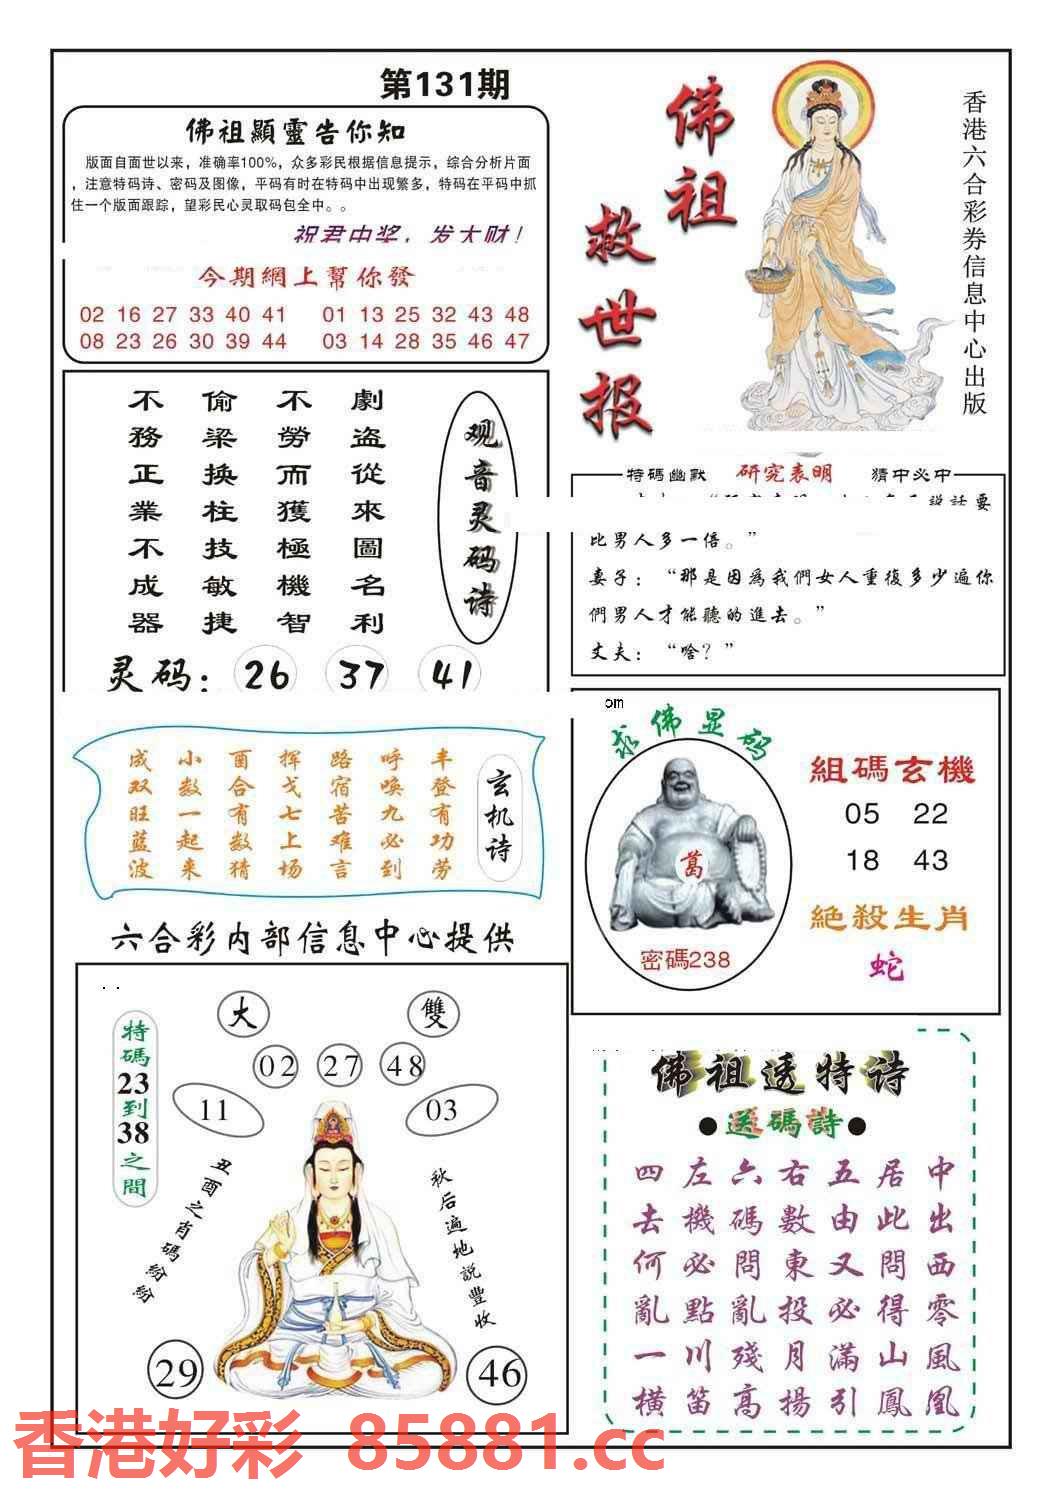 第131期
佛祖顯靈告你知
版面自面世以来，准确率100%，众多彩民根据信息提示，综合分析片面
，注意特码诗、密码及图像，平码有时在特码中出现繁多，特码在平码中抓
住一个版面跟踪，望彩民心灵取码包全中。。
祝君中奖，发大财！
今期網上幫你發
02 16 27 33 40 41 01 13 25 32 43 48
08 23 26 30 39 44 03 14 28 35 46 47
佛祖
救世报
香港六合彩券信息中心出版
观音灵码诗
劇盗從來圖名利
不勞而獲極機智
偷梁换柱技敏捷
不務正業不成器
灵码： 26 37 41
特碼幽默 研究表明 猜中必中
説話要
比男人多一倍。”
妻子：“那是因爲我們女人重復多少遍你
們男人才能聽的進去。”
丈夫：“啥？”
om
玄机诗
丰登有功劳
呼唤九必到
路宿苦难言
挥戈七上场
酉合有数猜
小数一起来
成双旺蓝波
求佛显码
萬
密碼238
組碼玄機
05 22
18 43
絕殺生肖
蛇
六合彩内部信息中心提供
特碼23到38之間
大 雙
02 27 48
11 03
丑酉之肖碼紛紛
秋后遍地説豐收
29 46
佛祖透特诗
●送碼詩●
中出西零風凰
居此問得山鳳
五由又必滿引
右數東投月揚
六碼問亂殘高
左機必點川笛
四去何亂一橫
香港好彩 85881.cc